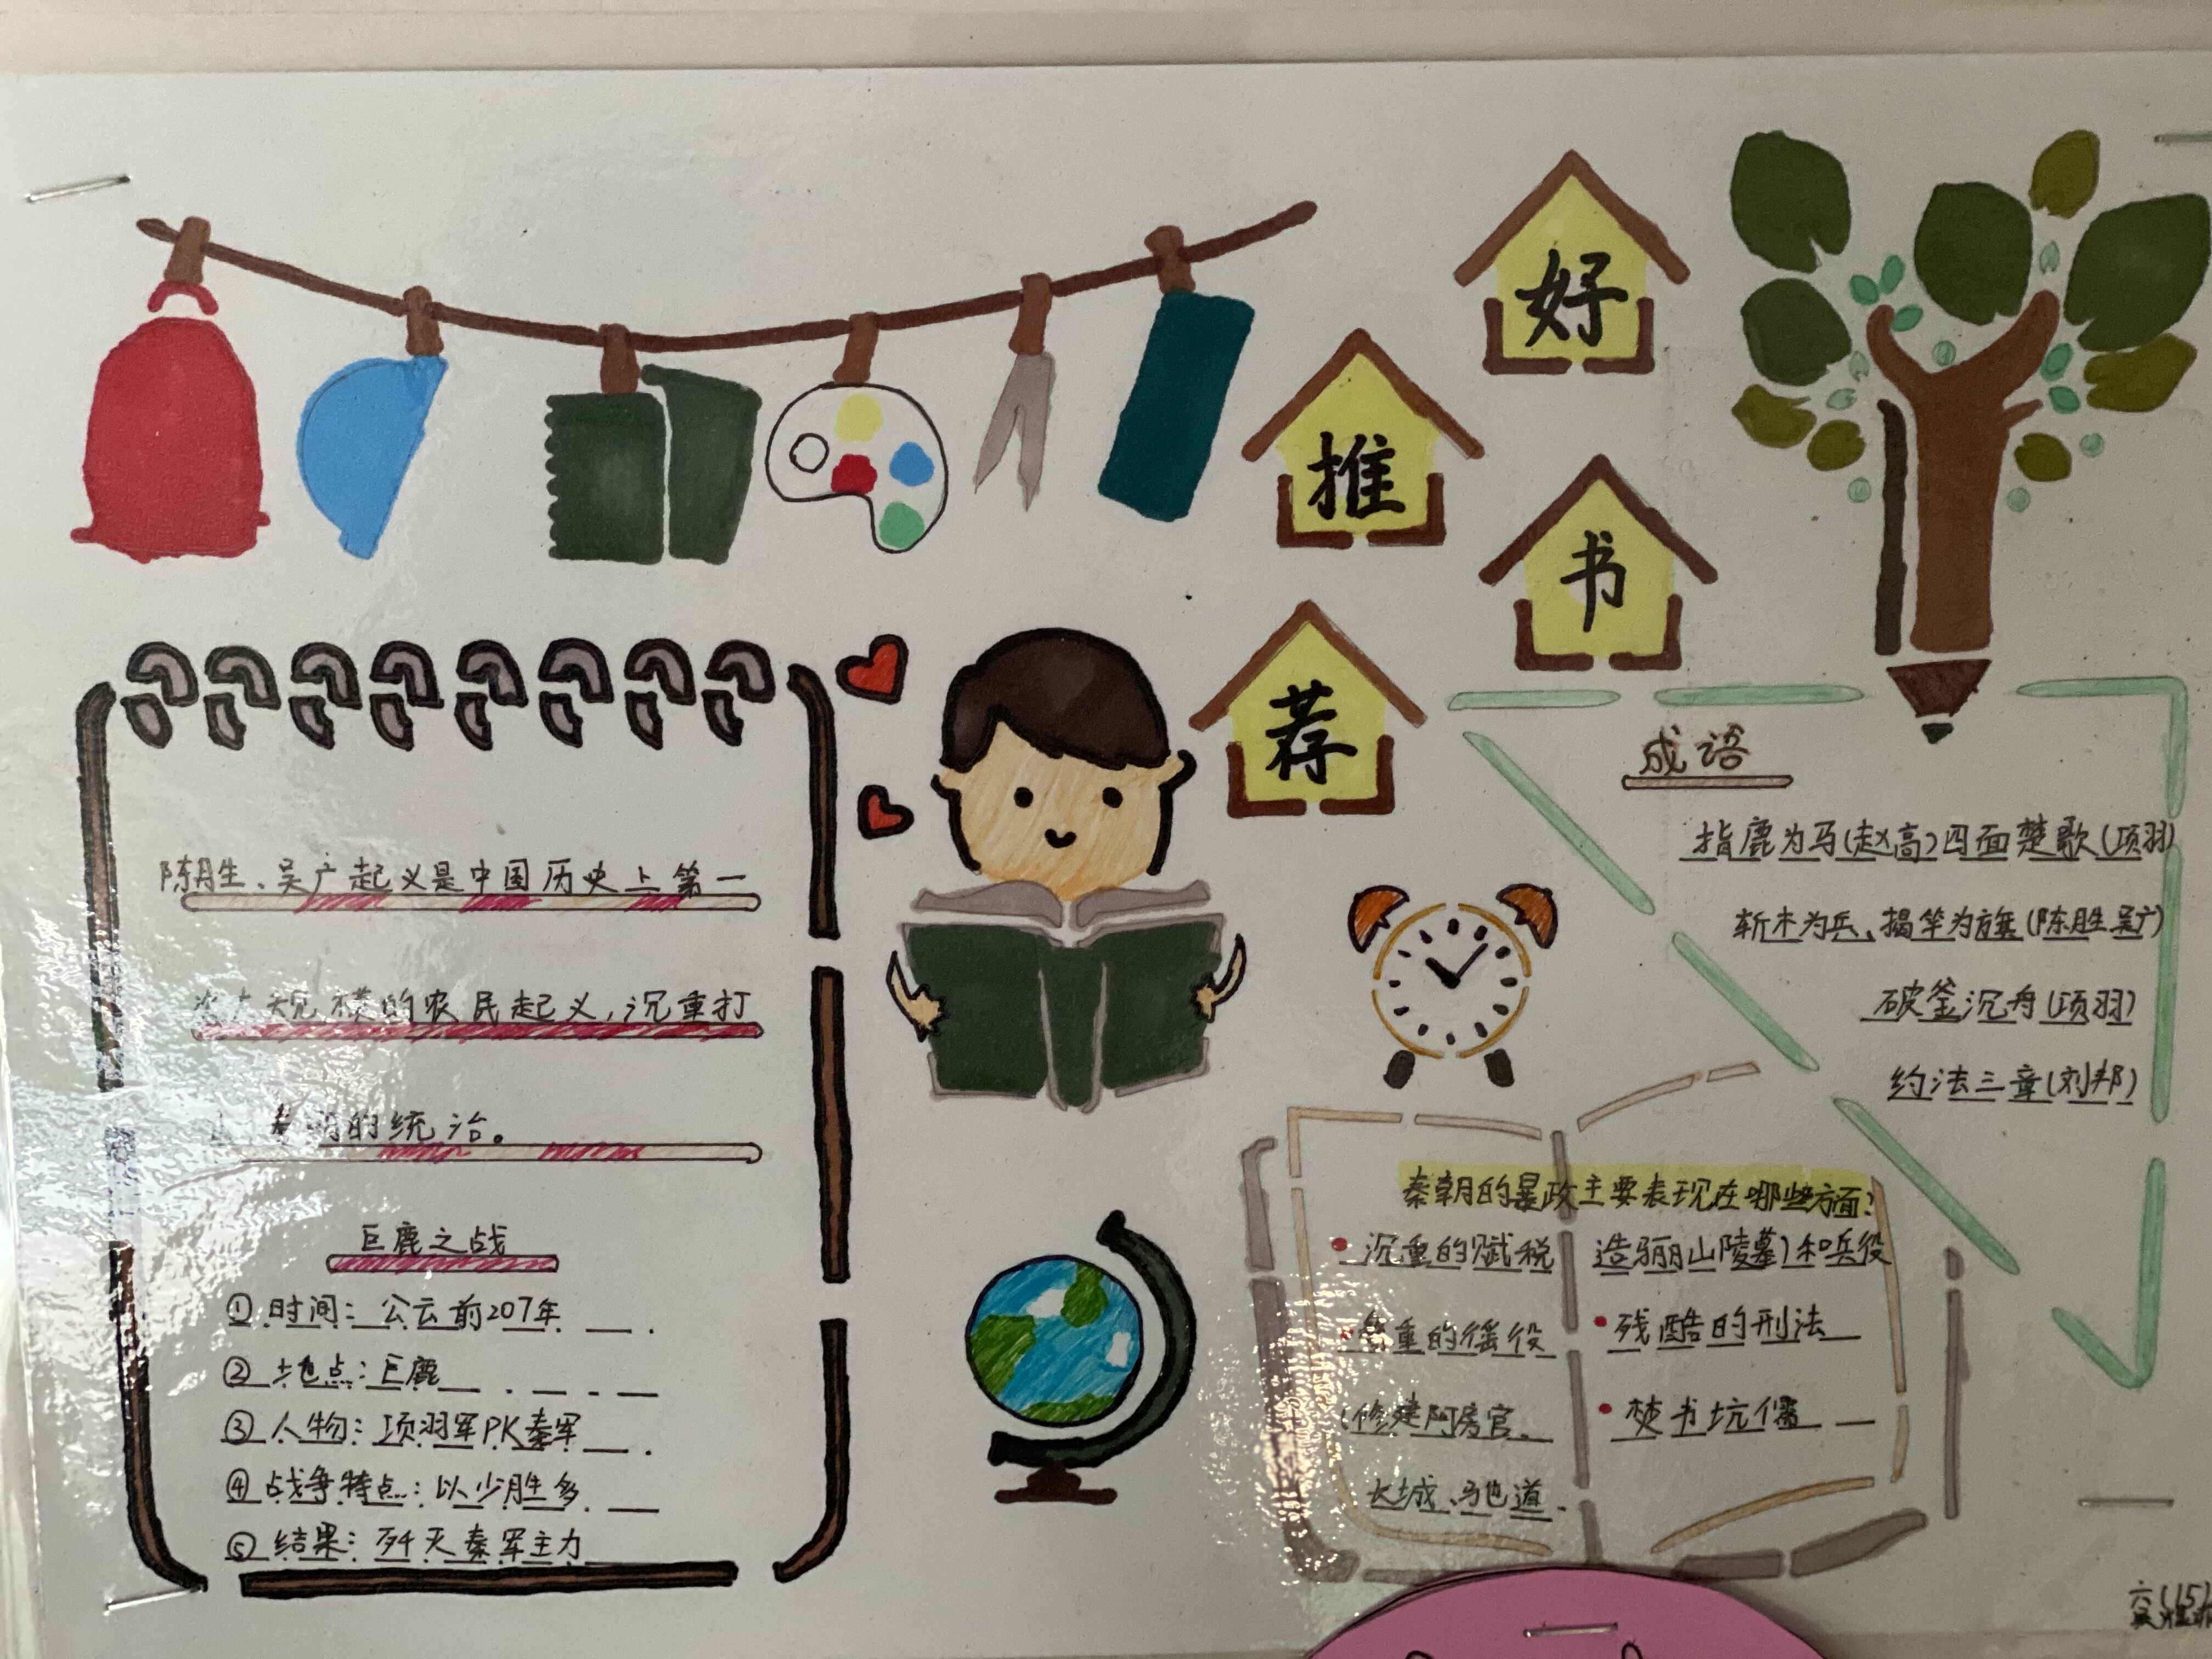 好
推
书
荐
陈胜、吴广起义是中国历史上第一
次大规模的农民起义,沉重打
的统治。
巨鹿之战
①时间:公元前207年
②地点:巨鹿
③人物:项羽军PK秦军
④战争特点:以少胜多
⑤结果:歼灭秦军主力
成语
指鹿为马(赵高)四面楚歌(项羽)
斩木为兵、揭竿为旗(陈胜吴广)
破釜沉舟(项羽)
约法三章(刘邦)
秦朝的暴政主要表现在哪些方面?
沉重的赋税
繁重的徭役
(修建阿房宫、
长城、驰道、
造骊山陵墓)和兵役
残酷的刑法
焚书坑儒
六(15)